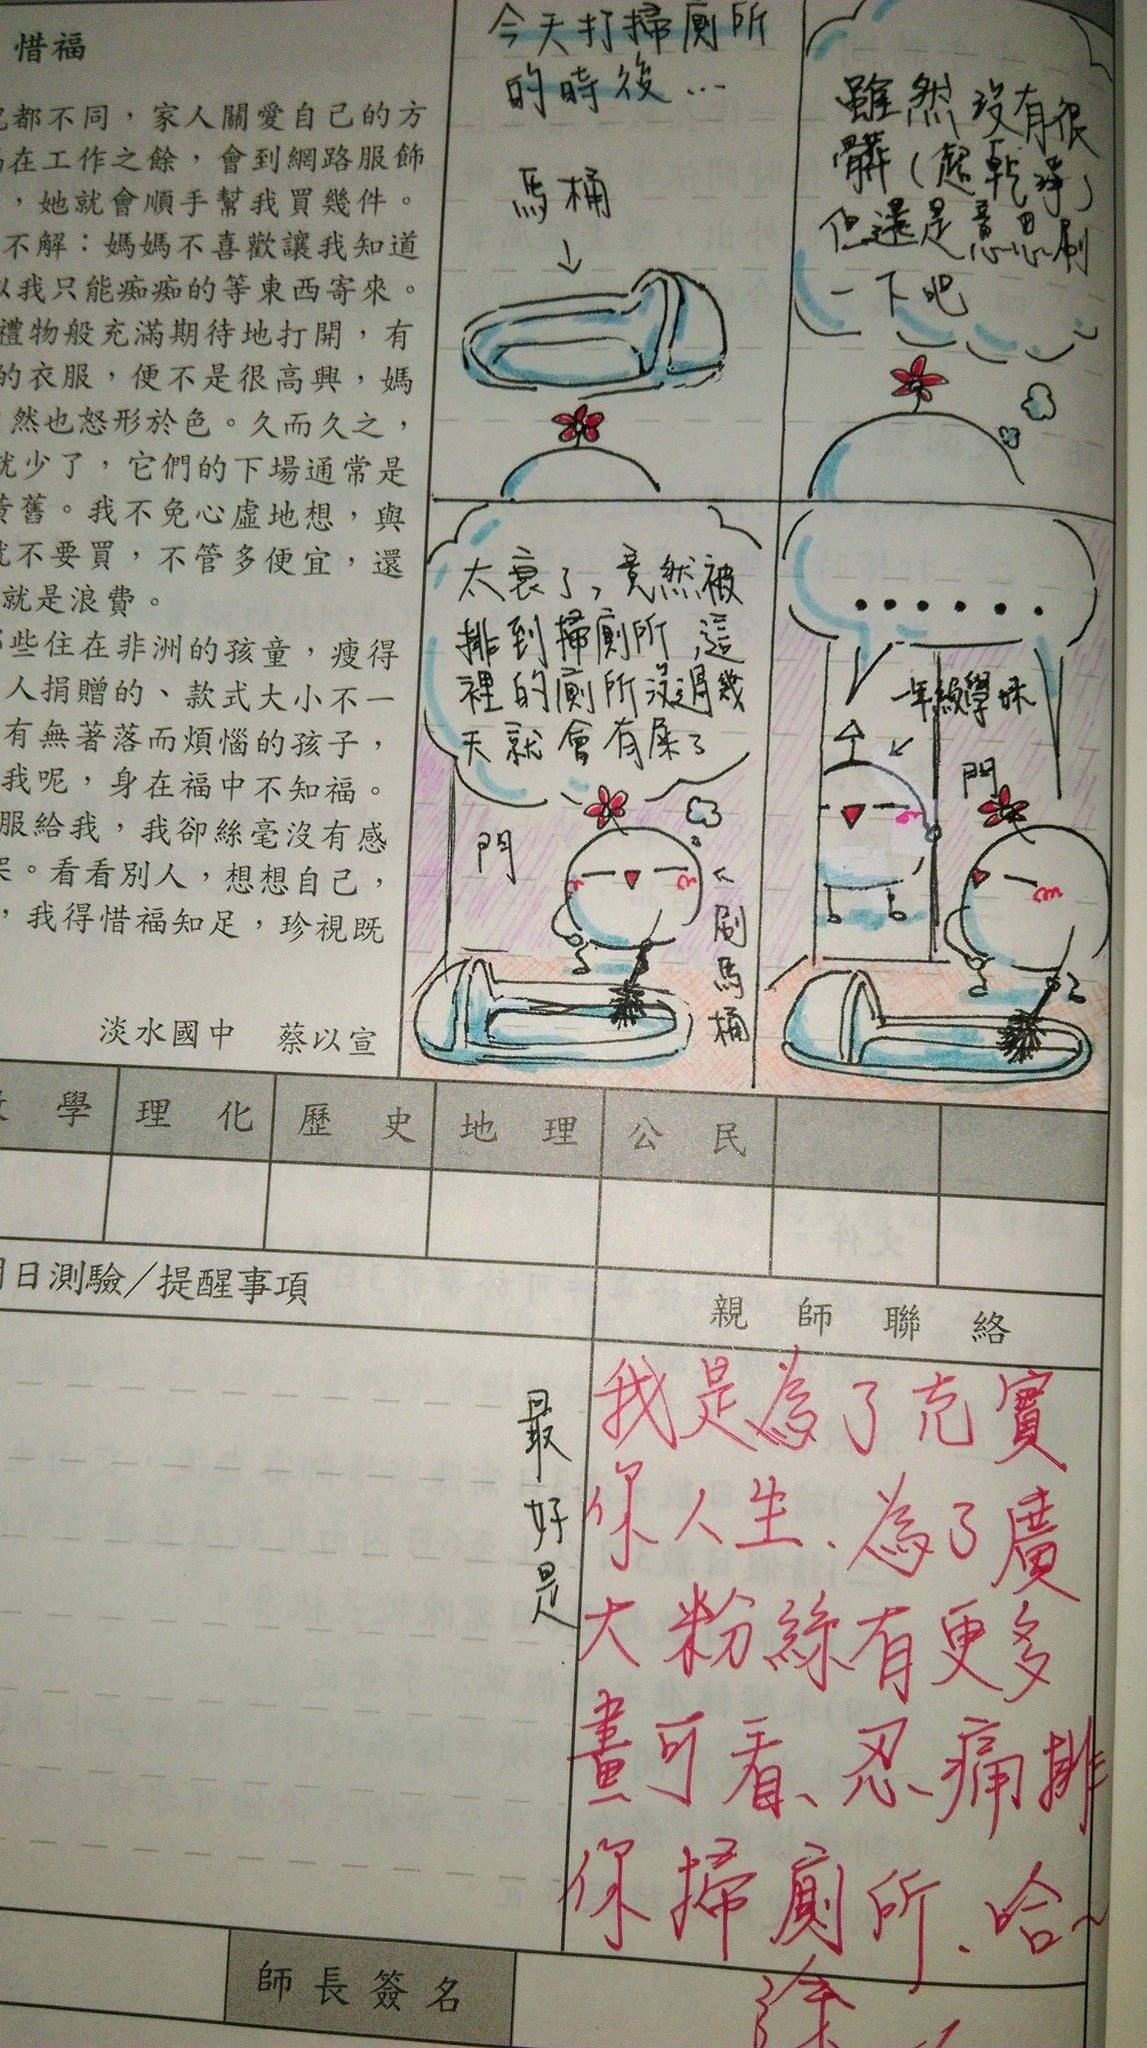 惜福
都不同，家人關愛自己的方
在工作之餘，會到網路服飾
，她就會順手幫我買幾件。
不解：媽媽不喜歡讓我知道
以我只能痴痴的等東西寄來。
禮物般充滿期待地打開，有
的衣服，便不是很高興，媽
然也怒形於色。久而久之，
就少了，它們的下場通常是
黃舊。我不免心虛地想，與
就不要買，不管多便宜，還
就是浪費。
那些住在非洲的孩童，瘦得
人捐贈的、款式大小不一
有無著落而煩惱的孩子，
我呢，身在福中不知福。
服給我，我卻絲毫沒有感
。看看別人，想想自己，
，我得惜福知足，珍視既
淡水國中 蔡以宣
今天打掃廁所
的時後…
馬桶
雖然沒有很
髒（超乾淨）
但還是意思刷
一下吧
太衰了，竟然被
排到掃廁所，這
裡的廁所沒過幾
天就會有屎了
門
刷馬桶
......
一年級學妹
門
學 理化 歷史 地理 公民
明日測驗/提醒事項
親師聯絡
最好是
我是為了充實
你人生、為了廣
大粉絲有更多
畫可看、忍痛排
你掃廁所、哈~
徐
師長簽名